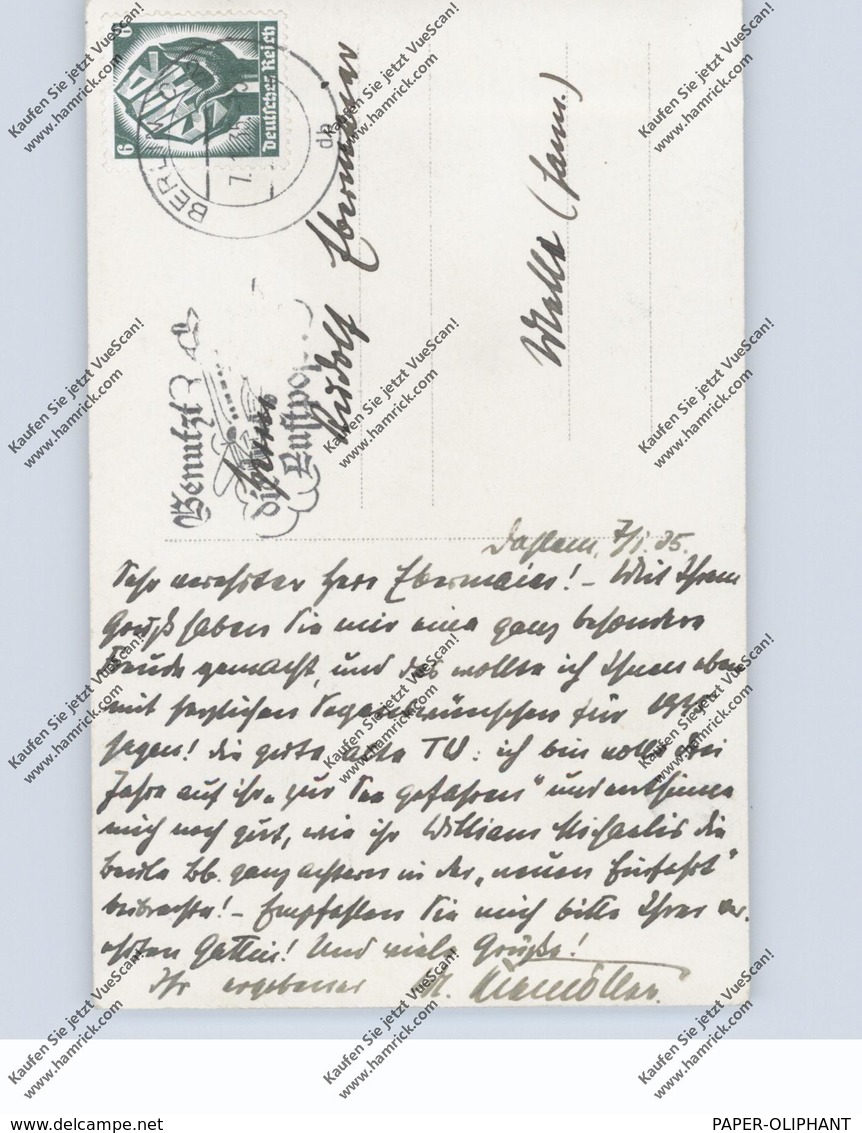 6 6
Deutsches Reich
BERLIN
7.
db
Benutzt
die
Luftpo
Herrn
Rudolf Ebermaier
Melle (Hann.)
Dahlem, 7/I. 35.
Sehr verehrter Herr Ebermaier! – Mit Ihrem
Gruß haben Sie mir eine ganz besondere
Freude gemacht, und das wollte ich Ihnen eben
mit herzlichen Segenswünschen für 1935
sagen! Die gute alte TU: ich bin volle drei
Jahre auf ihr „zur See gefahren“ und entsinne
mich noch gut, wie ihr William Michaelis die
Beule Bb. ganz achtern in der „neuen Einfahrt“
beibrachte! – Empfehlen Sie mich bitte Ihrer ver-
ehrten Gattin! Und viele Grüße!
Ihr ergebener M. Niemöller.
Kaufen Sie jetzt VueScan!
www.hamrick.com
delcampe.net
PAPER-OLIPHANT